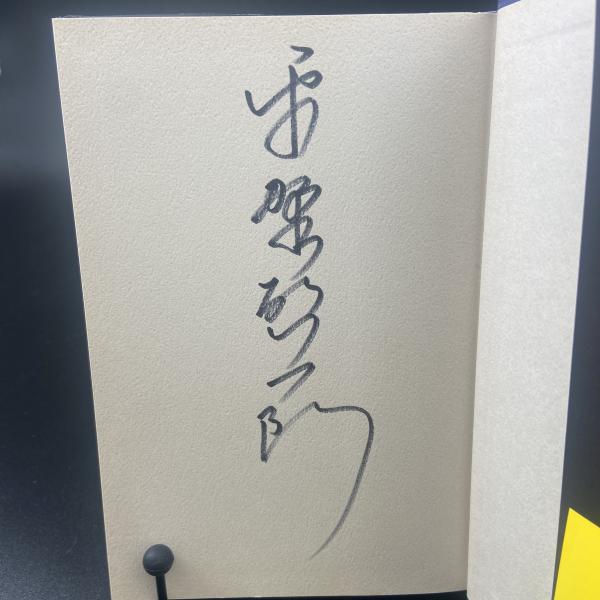 平野啓一郎